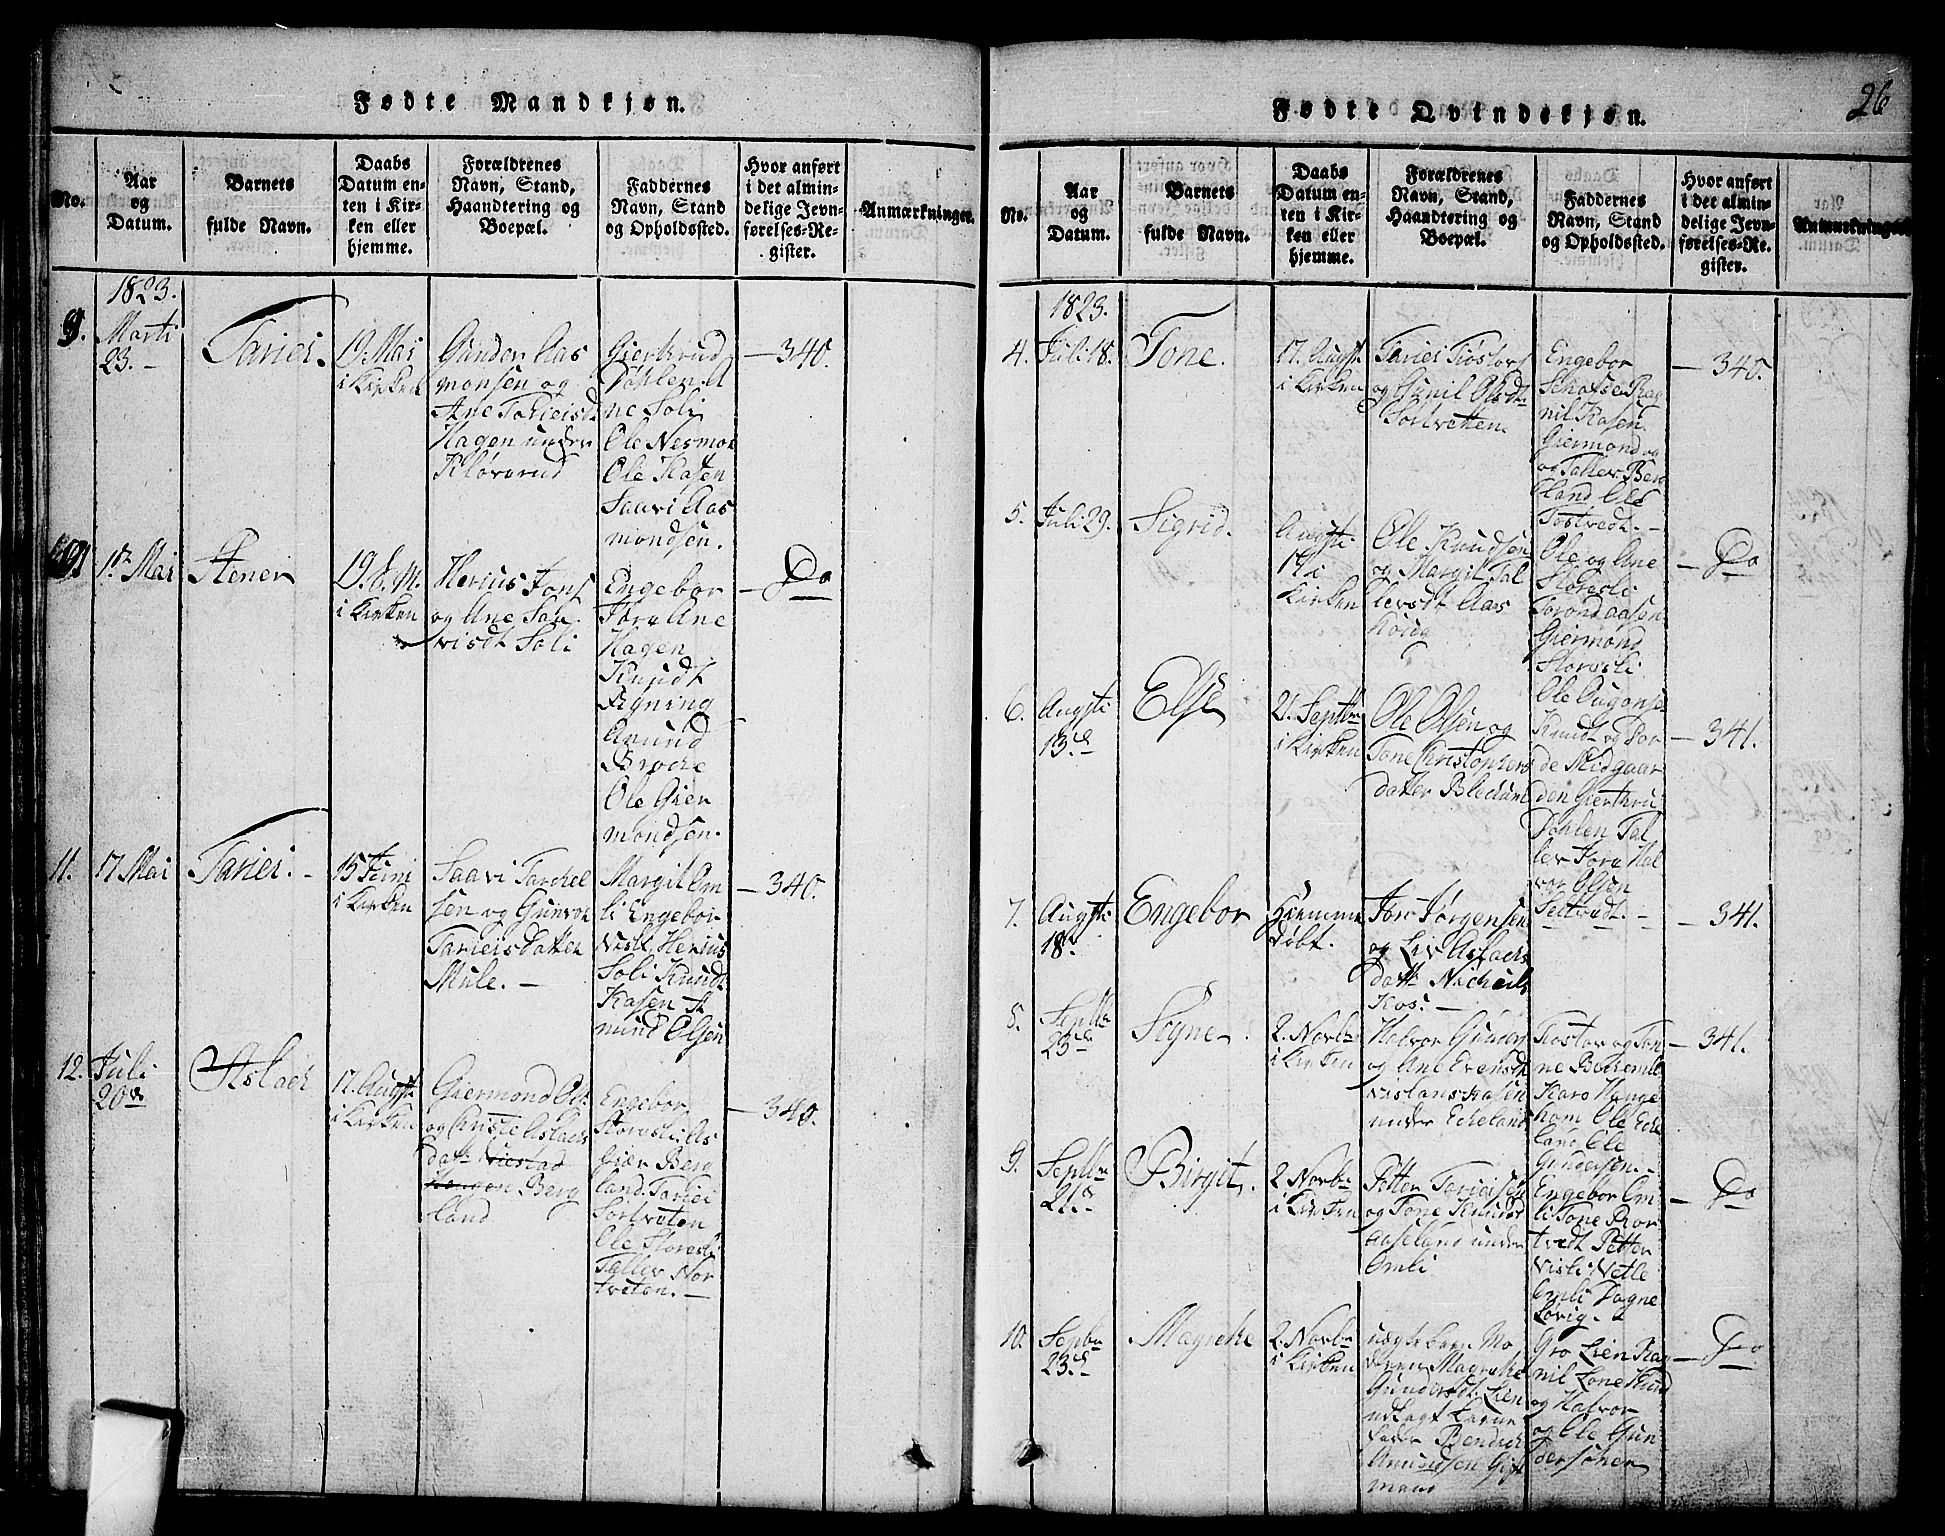 Fødte Mandkjøn.
No.
Aar
og
Datum.
Barnets
fulde Navn.
Daabs
Datum en-
ten i Kir-
ken eller
hjemme.
Forældrenes
Navn, Stand,
Haandtering og
Boepæl.
Faddernes
Navn, Stand
og Opholdssted.
Hvor anført
i det almin-
delige Jevn-
førelses-Re-
gister.
Anmærkninger.
1823.
9.
Marti
23.
Tariei.
19. Mai
i Kirken
Gunder Aas
monsen og
Ane Tarieisd
Hagen under
Kløverud
Giertrud
Dahlen A
ne Soli
Ole Nesmoe
Ole Kasen
Saavi Aas
mondsen.
340.
1ste Mai
Stener
19. E. M.
i Kirken
Herius Jons
og Ane Saa
visdt Soli
Engebor
Fore Ane
Hagen
Knudt
Figning
Amund
Broche
Ole Gier
mondsen.
Do
11.
17 Mai
Tariei.
15 Juni
i Kirken
Saavi Tarchel
sen og Gunvor
Tarieis Datter
Mule.
Margit Om
li Engebor
Visli Herius
Soli Knudt
Kasen A
mund Olsen
340.
12.
Juli
20de
Aslach
17. Augst
i Kirken
Giermond Ols
og Christe Aslachs
datt.
Berg
land
Engebor
Storesli As
Gier Berg
land. Tariei
Sortveten
Ole Storesli
Tallev Nor
tveten.
340.
26
Fødte Qvindekjøn.
No.
Aar
og
Datum.
Barnets
fulde Navn.
Daabs
Datum en-
ten i Kir-
ken eller
hjemme.
Forældrenes
Navn, Stand,
Haandtering og
Boepæl.
Faddernes
Navn, Stand
og Opholdssted.
Hvor anført
i det almin-
delige Jevn-
førelses-Re-
gister.
Anmærkninger.
1823.
4.
Juli 18.
Tone.
17. Augst.
i Kirken
Tariei Tiostols
og Gunil Olsdt
Sortvetten.
Engebor
Schofse Rag
nil Kasen
Giermond og
og Tallev Berg
land Ole
Tostvedt.
340.
5.
Juli 29.
Sigrid.
Augsti
17 i
Kirken
Ole Knudsen
og Margit Tal
levsdt Aas
Ole og Ane
Storesli
Torond Aasen
Giermond
Storesli
Do
6.
Augsti
13de
Else
21. Septbr
i Kirken
Ole Olsen og
Tone Christophers
datter Blechan
Ole Augonse
Knudt og Tor
de Midgaar
den Giertru
Dahlen Tal
lev Jore Hal
vor Olsen
Seltvedt.
341.
7.
Augsti
18.
Engebor
Hiemme
døbt.
Jon Jørgensen
og Liv Aslachs
datt. Nicheils
Kos.
341.
8.
Septbr
23de
Sogne
2. Novbr
i Kirken
Halvor Gunders
og Ane Evensdt
Vislans Kasen
under Echeland
Tiostov og Ton
ne Bochemle
Karo Hauge
hom Ole Eche
land, Ole
Gundersen.
341.
9.
Septbr
21de
Birgit.
2 Novbr
i Kirken
Petter Tarieisen
og Tone Knuds
Aaseland under
Omli
Engebor Om
li Tone Ror
tvedt Petter
Visli Vetle
Omli Dogne
Løvig.
Do
10.
Septbr
23de
Magrete
2. Novbr
i Kirken
uægte barn Mo
deren Magrete
Gundersdt Lien
udlagt Barne
fader Bendich
Amundsen Gift
mand
Gro Lien Rag
nil Lone Knud
og Halvor
og Ole Gun
dersønner
Do